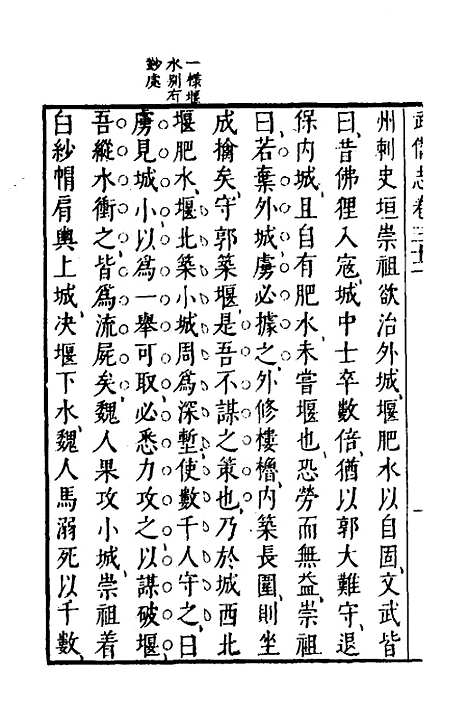 武備志卷三十二
州刺史垣崇祖欲治外城、堰肥水以自固、文武皆
曰、昔佛狸入寇、城中士卒數倍、猶以郭大難守、退
保内城、且自有肥水、未嘗堰也、恐勞而無益、崇祖
曰、若棄外城、虜必據之、外修樓櫓、内築長圍、則坐
成擒矣、守郭築堰、是吾不諫之策也、乃於城西北
堰肥水、堰北築小城、周為深塹、使數千人守之、曰
虜見城小、以為一舉可取、必悉力攻之、以謀破堰、
吾縱水衝之、皆為流屍矣、魏人果攻小城、崇祖着
白紗帽、肩輿上城、决堰下水、魏人馬溺死以千數、
一樣堰
水别有
妙處